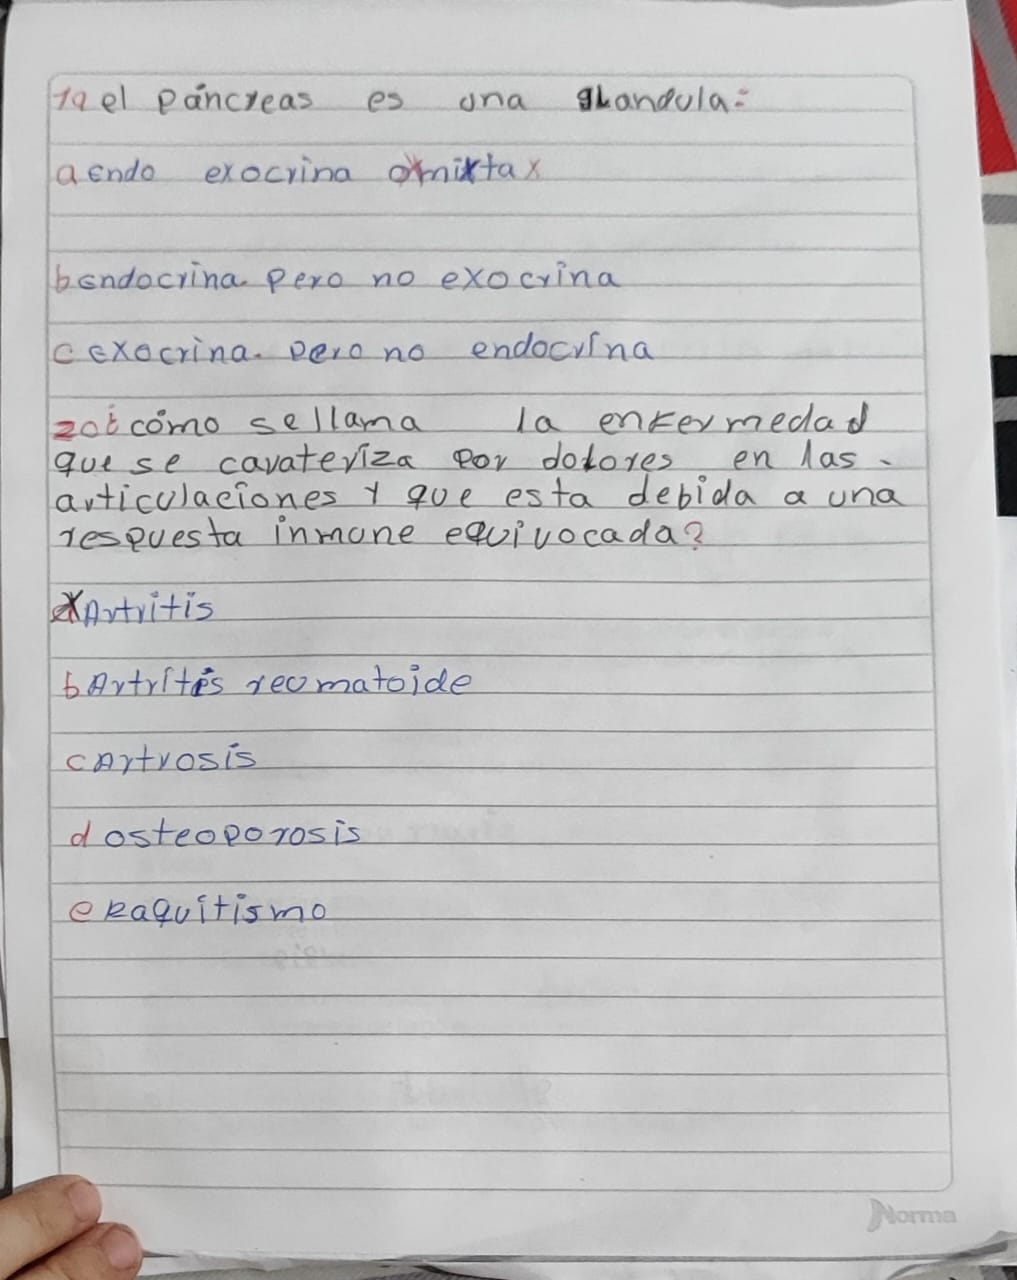 19 el páncreas es una glandula:
a endo exocrina o mixta x
b endocrina. Pero no exocrina
c exocrina. Pero no endocrina
20 ¿cómo se llama la enfermedad
que se carateriza por dolores en las.
articulaciones y que esta debida a una
respuesta inmune equivocada?
a Artritis
b Artritis reomatoide
c Artrosis
d osteoporosis
e Raquitismo
Norma